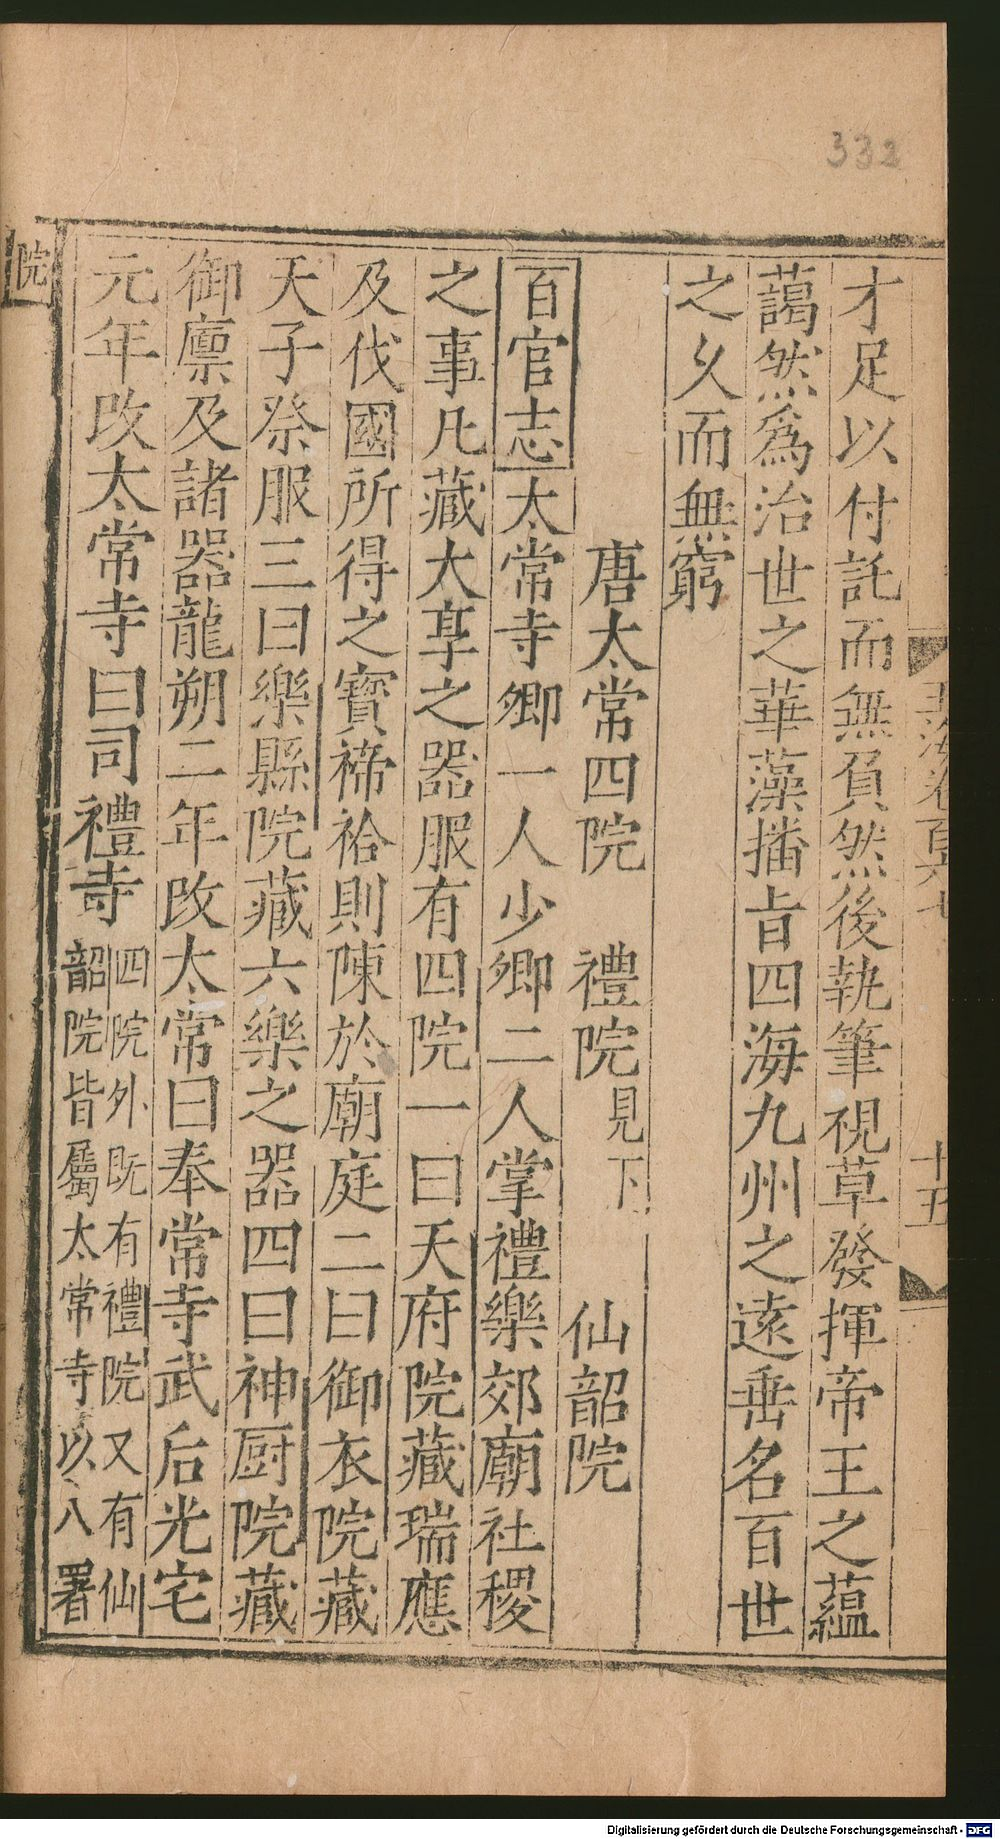 332
玉海卷百六七
十五
才足以付託而無負然後執筆視草發揮帝王之蘊
藹然爲治世之華藻播旹四海九州之遠垂名百世
之久而無窮
唐太常四院 禮院見下 仙韶院
百官志太常寺卿一人少卿二人掌禮樂郊廟社稷
之事凡藏大享之器服有四院一曰天府院藏瑞應
及伐國所得之寶禘祫則陳於廟庭二曰御衣院藏
天子祭服三曰樂縣院藏六樂之器四曰神厨院藏
御廩及諸器龍朔二年改太常曰奉常寺武后光宅
元年改太常寺曰司禮寺
四院外既有禮院又有仙
韶院皆屬太常寺以八署
院
Digitalisierung gefördert durch die Deutsche Forschungsgemeinschaft - DFG